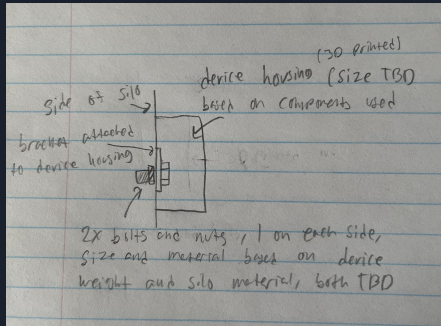 (3D printed)
device housing (size TBD
based on components used
side of silo
bracket attached
to device housing
2x bolts and nuts, 1 on each side,
size and material based on device
weight and silo material, both TBD